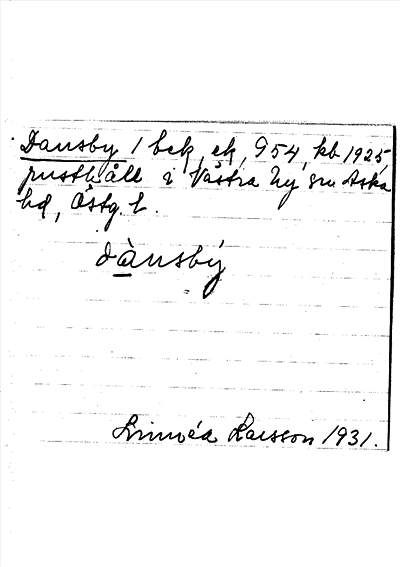 Dansby / bek, ek, 954, kb 1925,
rusthåll i Västra Ny sn Aska
hd, Östg. l.
dànsbý
Linnéa Larsson 1931.